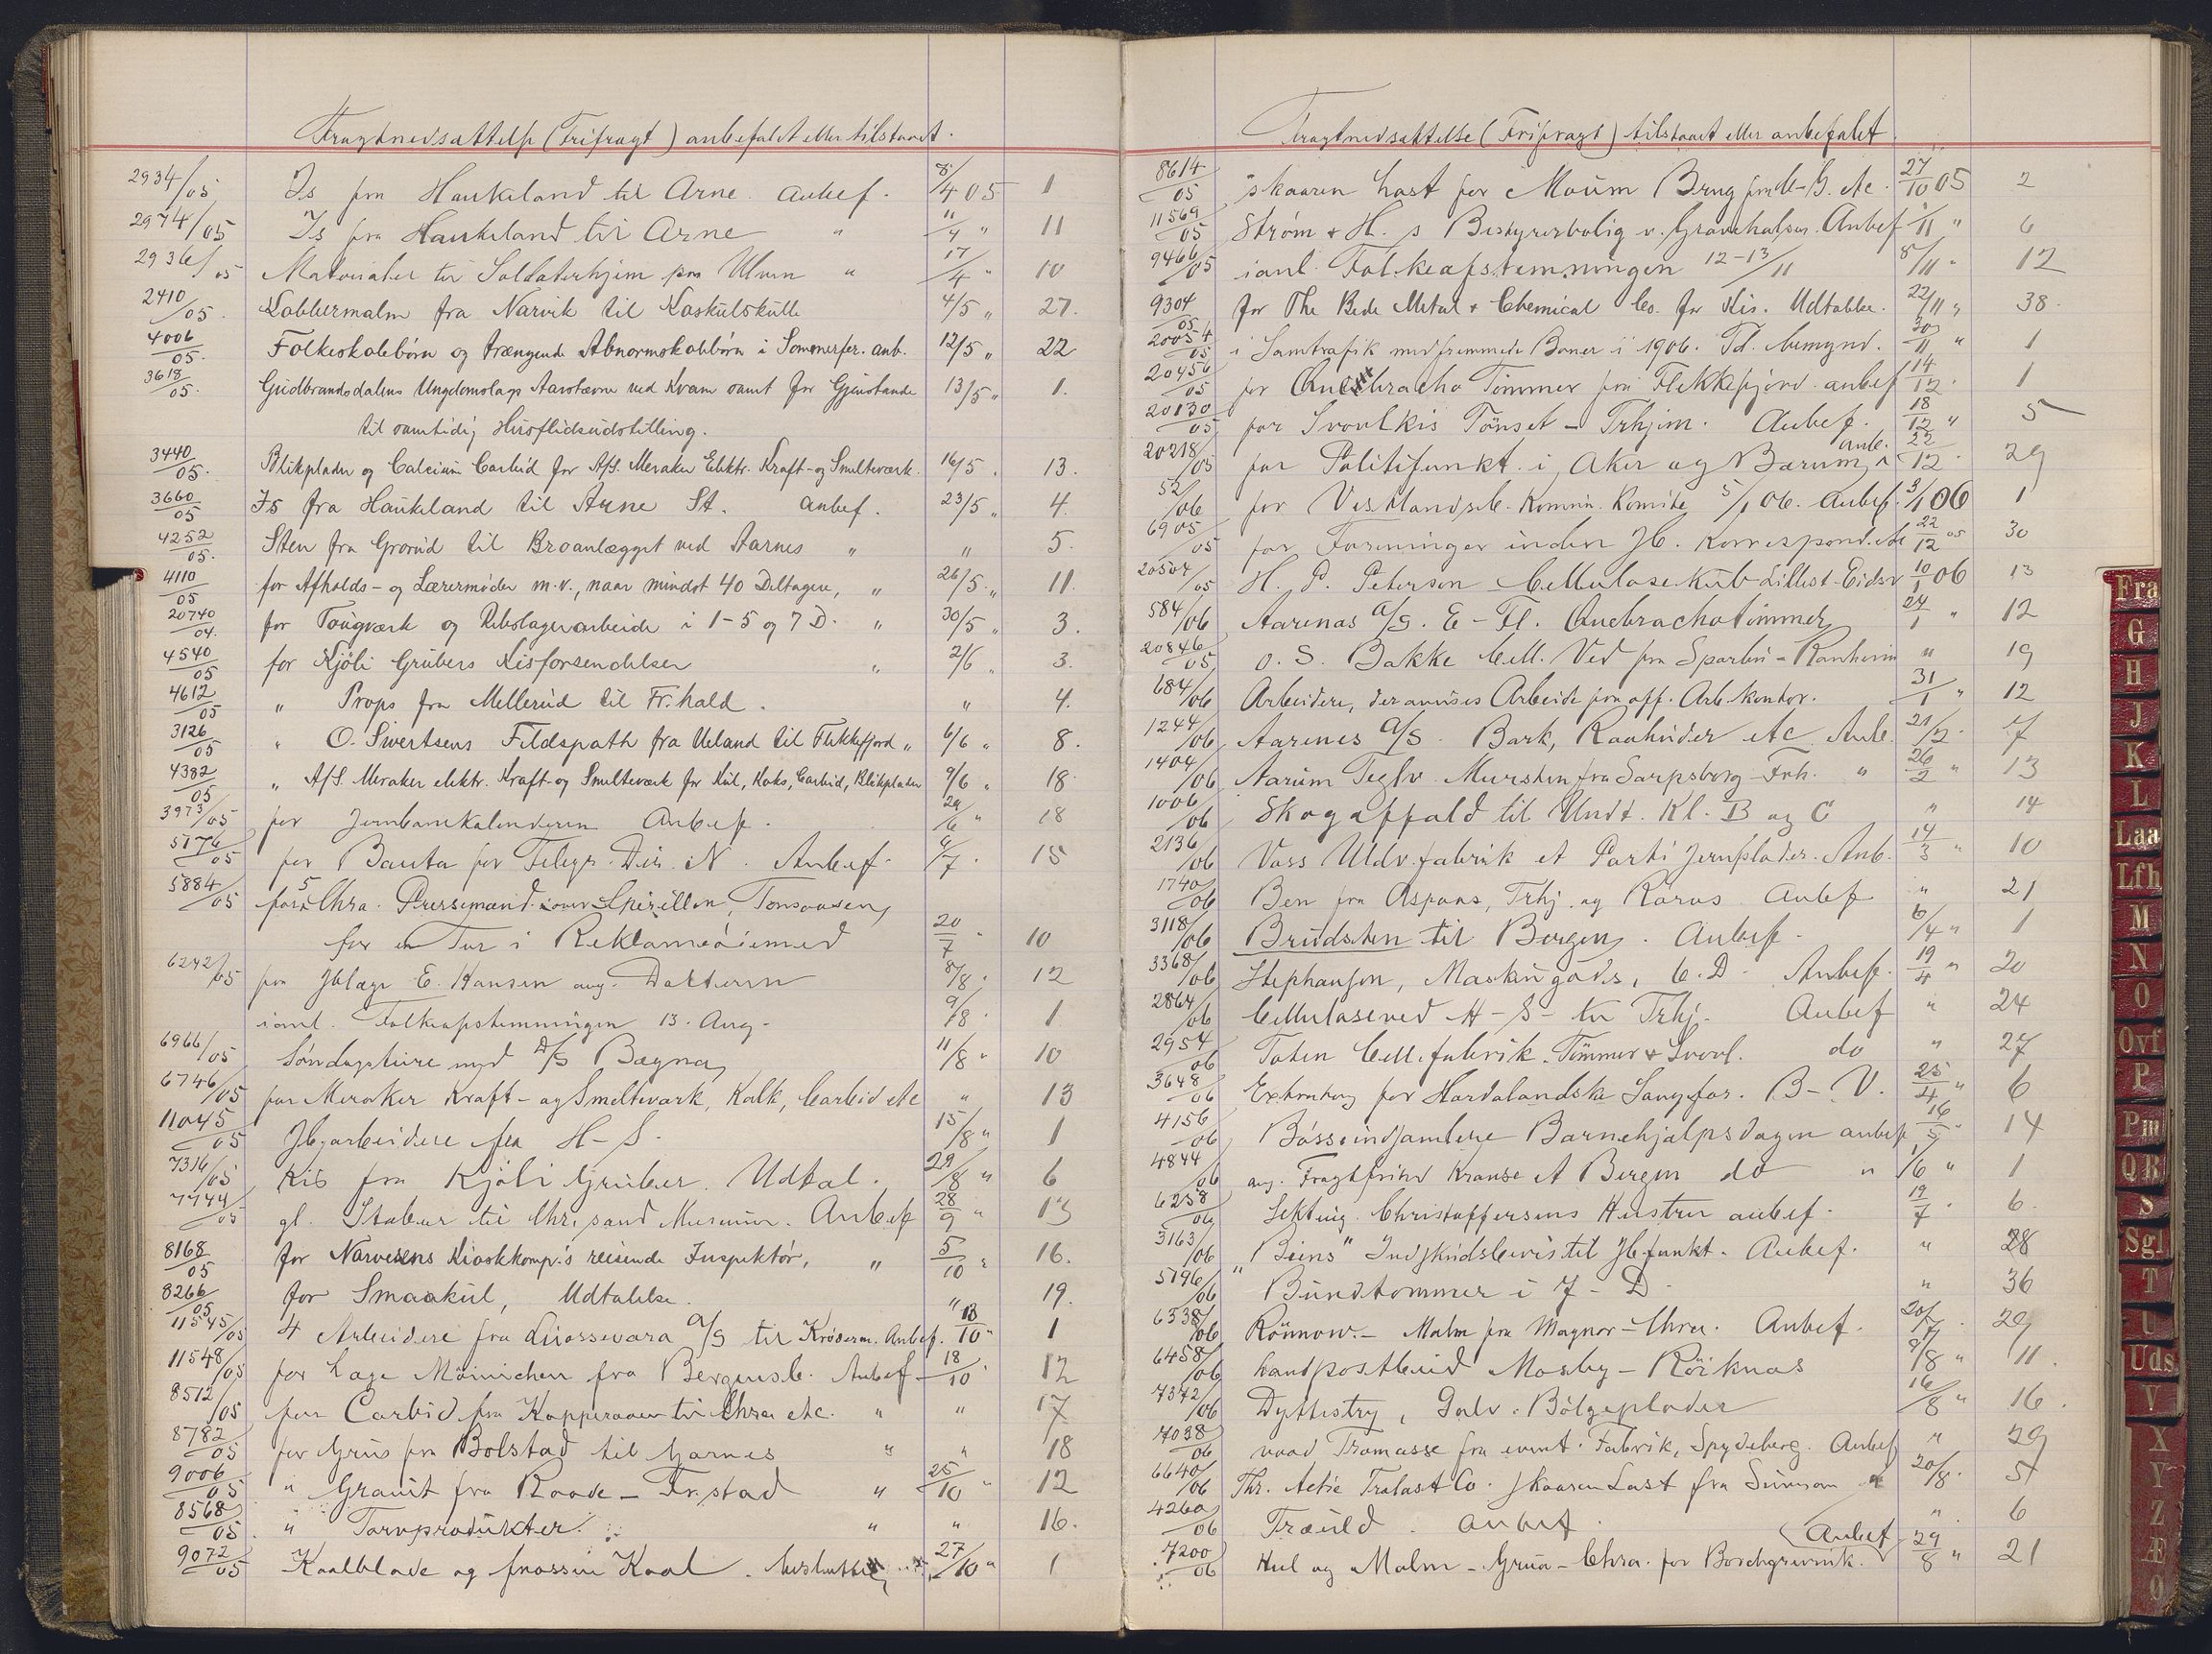 Fragtnedsættelse (Frifragt) anbefalet eller tilstaaet.
2934/05 Is fra Haukeland til Arne. Anbef. 7/4 05 1
2974/05 Is fra Haukeland til Arne " 11/4 " 11
2936/05 Materialer til Soldaterhjem paa Ulven " 17/4 " 10
2410/05. Kobbermalm fra Narvik til Koskulskulle 4/5 " 27.
4006/05. Folkeskolebörn og trængende Abnormskolebörn i Sommerfer. anb. 12/5 " 22
3618/05. Gudbrandsdalens Ungdomslags Aarsstævne ved Kvam samt for Gjenstande 13/5 " 1.
til samtidig Husflidsudstilling.
3440/05. Blikplader og Calcium Carbid for A/S. Meraker Elektr. Kraft- og Smelteværk. 16/5 . 13.
3660/05 Is fra Haukeland til Arne St. anbef. 23/5 " 4.
4252/05. Sten fra Grorud til Broanlægget ved Aarnes " " 5.
4110/05 for Afholds- og Lærermöder m.v., naar mindst 40 Deltagere, " 26/5 " 11.
20740/04. for Tougværk og Rebslagerarbeide i 1-5 og 7 D. " 30/5 " 3.
4540/05 for Kjöli Grubers Kisforsendelser " 2/6 " 3.
4612/05 " Props fra Mellerud til Fr.hald. " 4.
3126/05 " O. Sivertsens Feldspath fra Ueland til Flekkefjord " 6/6 " 8.
4382/05 " A/S. Meraker elektr. Kraft- og Smelteværk for Kul, Koks, Carbid, Blikplader 9/6 " 18.
3973/05 for Jernbanekalenderen Anbef. 29/6 " 18
5176/05 for Bauta for Telegr. Dir. N. Anbef. 6/7 . 15
5884/05 for 5 Chra. Pressemænd over Spirillen, Tonsaasen,
for en Tur i Reklameöiemed 20/7 " 10
6242/05 fra Jblæge E. Hansen ang. Datteren 8/8 . 12
ianl. Folkeafstemningen 13. Aug. 9/8 . 1
6966/05 Söndagsture med D/S Bægna, 11/8 " 10
6746/05 for Meraker Kraft- og Smelteværk, Kalk, Carbid etc " 13
11045/05 Jbarbeidere fra H-S. 15/8 " 1
7316/05 Kis fra Kjöli Gruber. Udtal. 29/8 " 6
7744/05 gl. Stabur til Chr.sand Museum. Anbef 28/9 " 13
8168/05 for Narvesens Kioskkomp.'s reisende Inspektör, " 5/10 " 16.
8266/05 for Smaakul, Udtalelse. " 19.
11545/05 4 Arbeidere fra Luossavara A/S til Kröderen. Anbef. 18/10 " 1
11548/05 for Lage Mönnichen fra Bergensb. Anbef 18/10 . 12
8512/05 for Carbid fra Kopperaaen til Chra etc. " " 17
8782/05 for Grus fra Bolstad til Garnes " " 18
9006/05 " Granit fra Raade - Fr.stad " 25/10 " 12
8568/05. " Torvprodukter. " " 16.
9072/05 Kaalblade og frossen Kaal. 27/10 " 1
Fragtnedsættelse (Frifragt) tilstaaet eller anbefalet
8614/05 skaaren Last for Moum Brug fra etc. 27/10 05 2
11569/05 Ström & H.s Bestyrerbolig v. Gravehalsen. Anbef /11 " 6
9466/05 ianl. Folkeafstemningen 12-13/11 8/11 " 12
9304/05 for The Bede Metal & Chemical Co. for Kis. Udtalelse. 22/11 " 38.
20054/05 i Samtrafik med fremmede Baner i 1906. 30/11 " 1
20456/05 for Quebracho Tömmer fra Flekkefjord. anbef 14/12. 1
20130/05 for Svovlkis Tönset - Trhjem. Anbef. 18/12 " 5
20218/05 for Politifunkt. i Aker og Bærum, anb. 22/12 . 29
52/06 for Vestlandsb. Komun. Komite 5/1 06. Anbef. 3/1 06 1
6905/05 for Foreninger inden Jb. Korrespond. etc 22/12 05 30
20504/05 H. P. Peterson Cellulosekub Lillest.-Eidsv 10/1 06 13
584/06 Aarenes A/S. E - Fl. Quebrachotimmer 24/1 " 12
20846/05 O. S. Bakke Cell. Ved fra Sparbu - Ranheim " 19
684/06 Arbeidere, der anvises Arbeide fra off. Arb.kontor. 31/1 " 12
1244/06 Aarenes A/S. Bark, Raahuder etc Anb. 21/2 . 7
1404/06 Aarum Teglv. Mursten fra Sarpsborg - Frh. " 26/2 " 13
1006/06 Skogaffald til Undt. Kl. B og C " 14
2136/06 Voss Uldv.fabrik et Parti Jernplader. Anb. 14/3 " 10
1740/06 Ben fra Aspaas, Trhj. og Röros Anbef " 21
3118/06 Brudsten til Bergen. Anbef. 6/4 " 1
3368/06 Stephansen, Maskingods, C.D. Anbef. 19/4 " 20
2864/06 Celluloseved H-S- til Trhj. Anbef " 24
2954/06 Toten Cell.fabrik. Tömmer & Svovl. do " 27
3648/06 Extratog for Hardalandske Sangfor. B-V. 25/4 " 6
4156/06 Bösseindsamlere Barnehjælpsdagen anbef 16/5 " 14
4844/06 ang. Fragtfrihed Kranse et Bergen do " 1/6 " 1
6258/06 Sekting. Christoffersens Hustru anbef. 19/7 . 6.
3163/06 "Beins" Indskudsbevis til Jb.funkt. Anbef. " 28
5196/06 Bundtommer i 7 - D. " 36
6538/06 Rönnow. - Malm fra Magnor - Chra. Anbef. 20/7 . 29
6458/06 Landpostbud Mosby - Röiknes 8/8 " 11.
7372/06 Dyttestry, Galv. Bölgeplader 16/8 " 16.
7038/06 vaad Træmasse fra event. Fabrik, Spydeberg. Anbef " 29
6640/06 Thr. Actie Trælast Co. skaaren Last fra Sunnan " 20/8 . 5
4260/06 Træuld. Anbef. " 6
7200/06 Kul og Malm - Grua - Chra. for Borchgrevink. Anbef 29/8 " 21
Fra
G
H
J
K
L
Laa
Lfh
M
N
O
Ovf
P
Pm
QR
S
Sgl
T
U
Uds
V
X
Y
Z
Æ
Ö